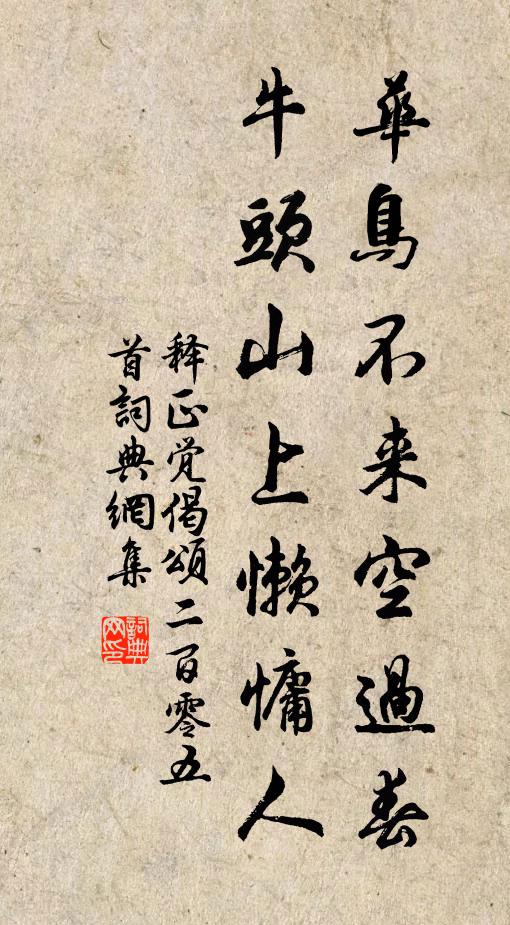 華鳥不来空過春
牛頭山上懒慵人
释正觉偈頌二百零五
首詞典網集
詞典网印